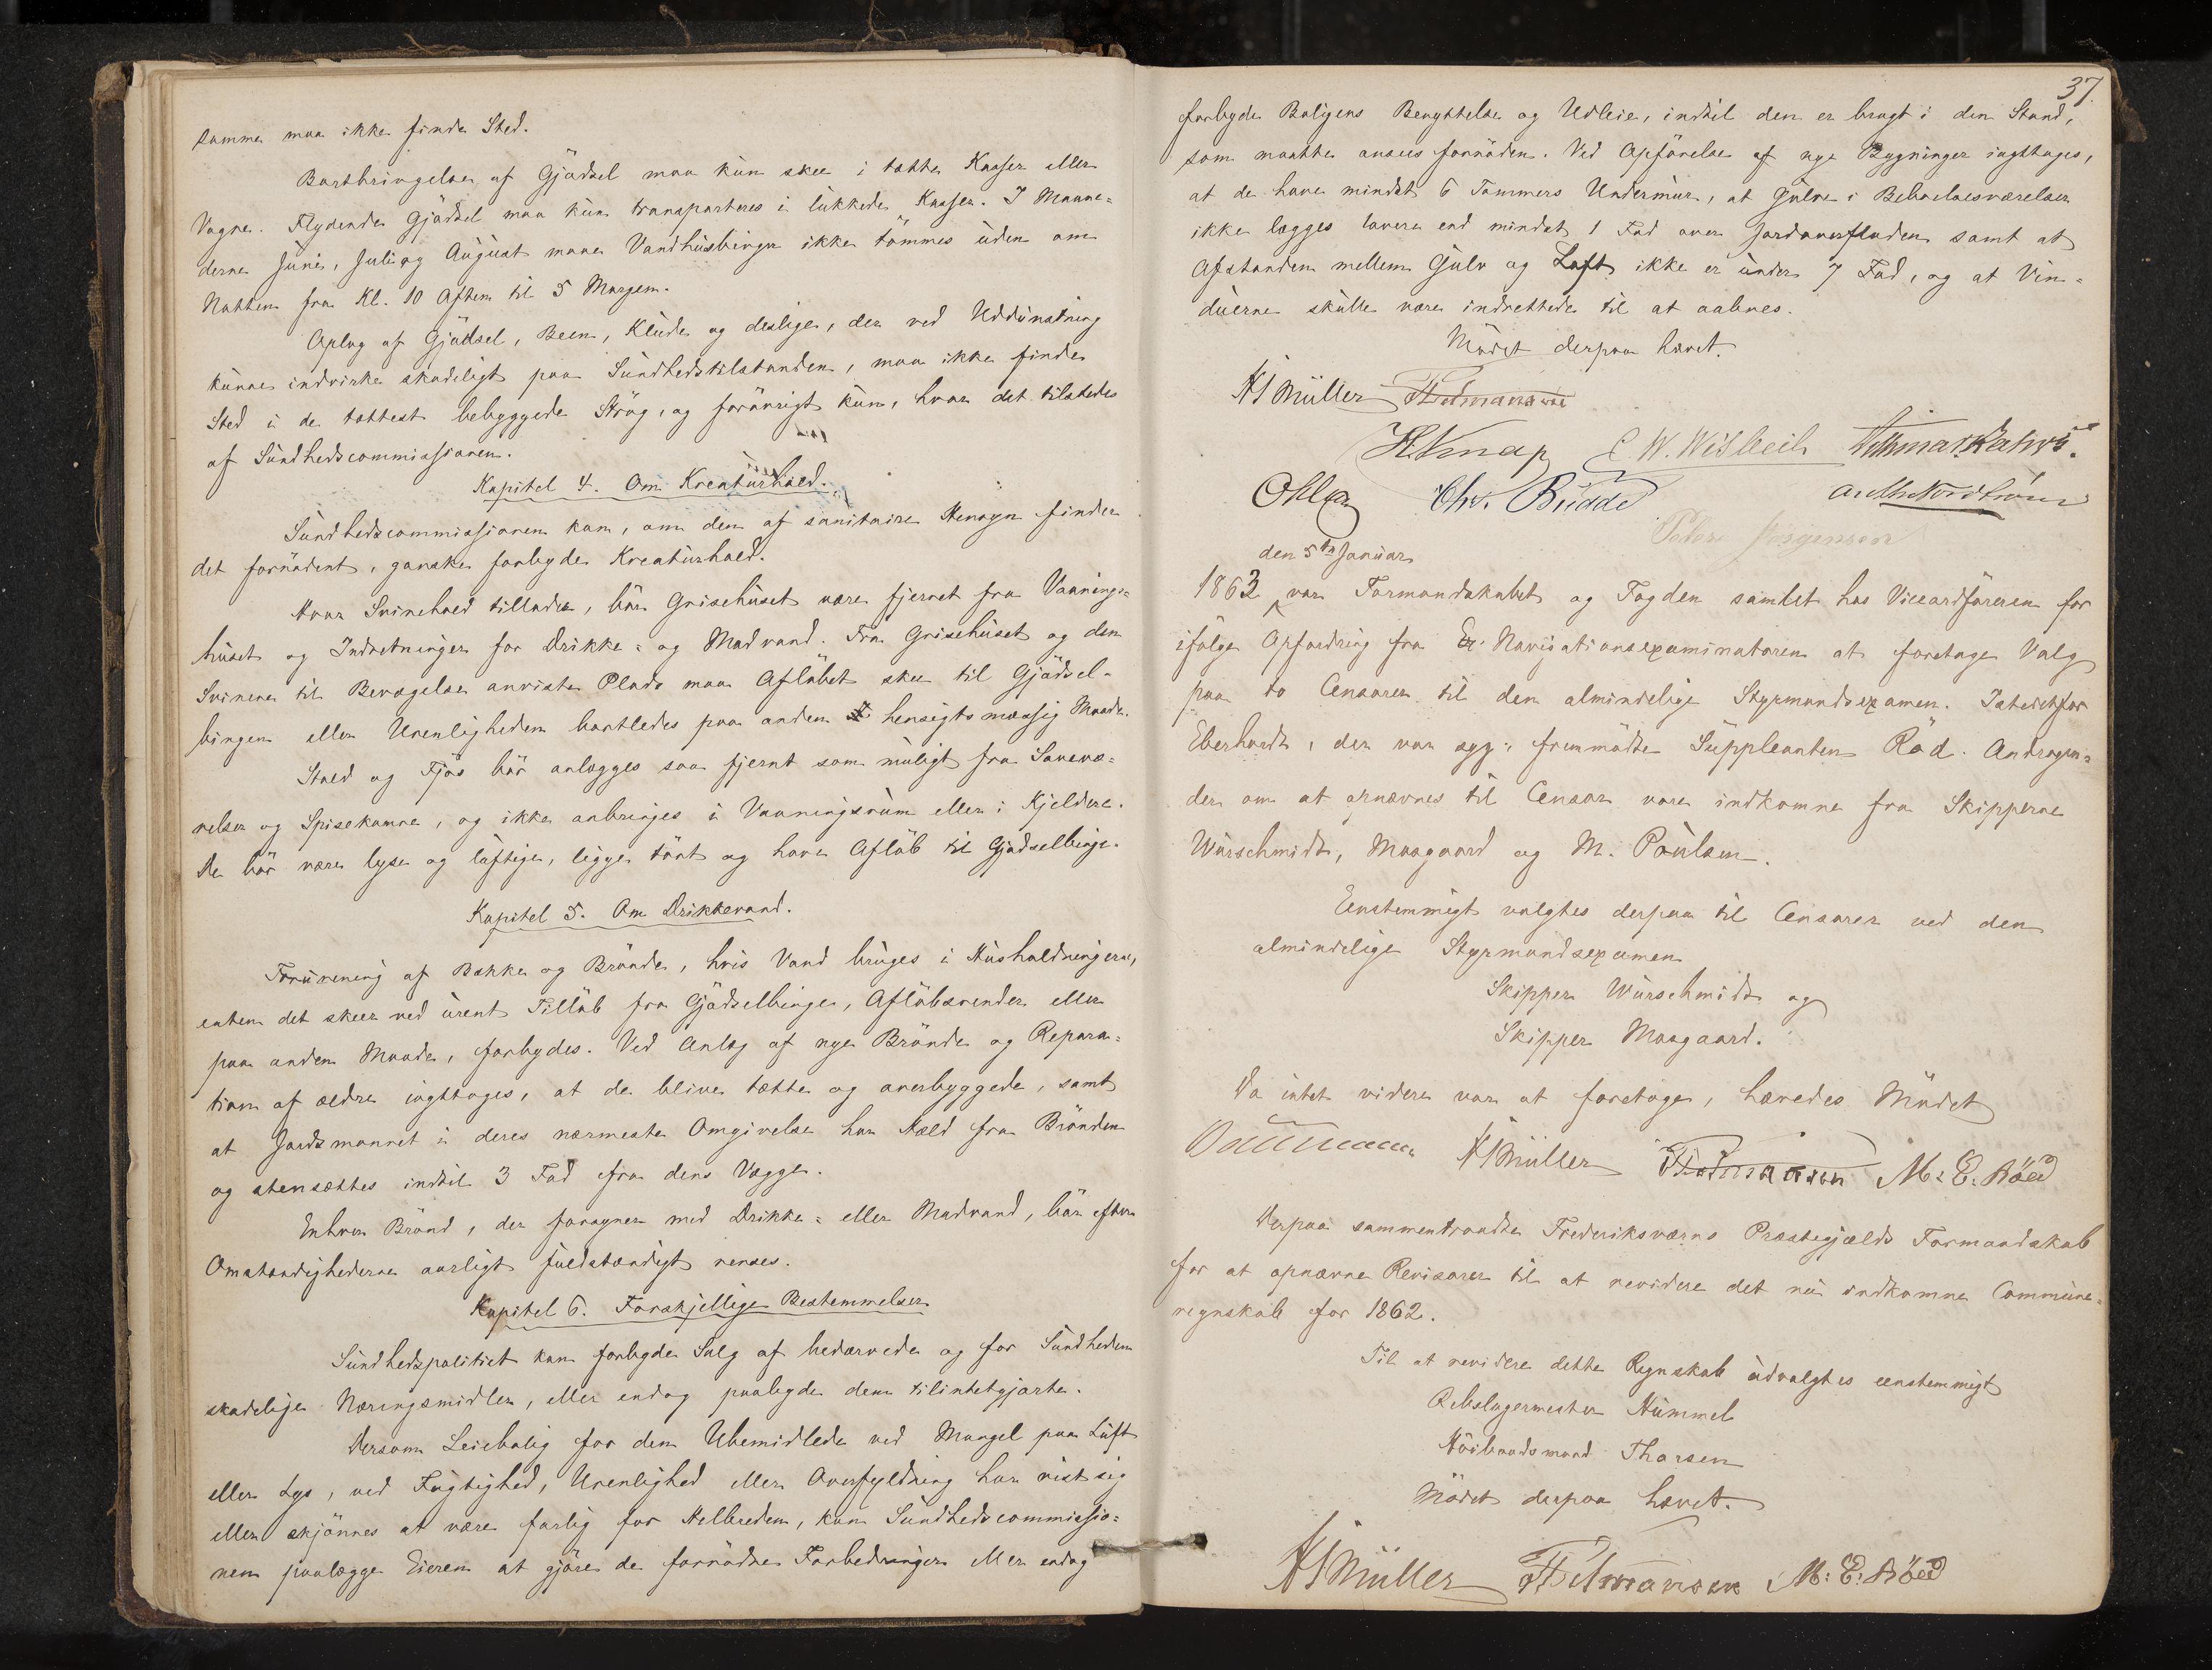 samme maa ikke finde Sted.
Bortbringelse af Gjödsel maa kun skee i tætte Kasser eller
Vogne. Flydende Gjödsel maa kun transporteres i lukkede Kasser. I Maane-
derne Juni, Juli og August maae Vandhusbinger ikke tömmes uden om
Natten fra Kl. 10 Aften til 5 Morgen.
Oplag af Gjödsel, Been, Klude og deslige, der ved Uddunstning
kunne indvirke skadeligt paa Sundhedstilstanden, maa ikke finde
Sted i de tættest bebyggede Strög, og forövrigt kun, hvor det tilstedes
af Sundhedscommissionen.
Kapitel 4. Om Kreaturhold.
Sundhedscommissionen kan, om den af sanitaire Hensyn finder
det fornödent, ganske forbyde Kreaturhold.
Hvor Svinehold tillades, bör Grisehuset være fjernet fra Vaanings-
huset og Indretninger for Drikke- og Madvand. Fra Grisehuset og den
Svinene til Bevægelse anviste Plads maa Aflöbet skee til Gjödsel-
bingen eller Urenligheden bortledes paa anden hensigtsmæssig Maade.
Stald og Fjös bör anlægges saa fjernt som muligt fra Sovevæ-
relser og Spisekamre, og ikke anbringes i Vaaningsrum eller i Kjeldere.
De bör være lyse og luftige, ligge tört og have Aflöb til Gjödselbinge.
Kapitel 5. Om Drikkevand.
Forurening af Bække og Brönde, hvis Vand bruges i Husholdningerne,
enten det skeer ved urent Tillöb fra Gjödselbinge, Aflöbsrender eller
paa anden Maade, forbydes. Ved Anlæg af nye Brönde og Repara-
tion af ældre iagttages, at de blive tætte og overbyggede, samt
at Jordsmonnet i deres nærmeste Omgivelse har Hæld fra Brönden
og stensættes indtil 3 Fod fra dens Vægge.
Enhver Brönd, der forsyner med Drikke- eller Madvand, bör efter
Omstændighederne aarligt fuldstændigt renses.
Kapitel 6. Forskjellige Bestemmelser
Sundhedspolitiet kan forbyde Salg af bedærvede og for Sundheden
skadelige Næringsmidler, eller endog paabyde dem tilintetgjorte.
Dersom Leiebolig for den Ubemidlede ved Mangel paa Luft
eller Lys, ved Fugtighed, Urenlighed eller Overfyldning har vist sig
eller skjönnes at være farlig for Helbreden, kan Sundhedscommissio-
nen paalægge Eieren at gjöre de fornödne Forbedringer eller endog
37.
forbyde Boligens Benyttelse og Udleie, indtil den er bragt i den Stand,
som maatte ansees fornöden. Ved Opförelse af nye Bygninger iagttages,
at de have mindst 6 Tommers Undermur, at Gulve i Beboelsesværelser
ikke lægges lavere end mindst 1 Fod over Jordoverfladen samt at
Afstanden mellem Gulv og Loft ikke er under 7 Fod, og at Vin-
duerne skulle være indrettede til at aabnes.
Mödet derpaa hævet.
HJMüller
HKnap C. W. Wisbech
Ohlsen Chr. Budde
Peder Jörgensen
den 5te Januar
1863 var Formandskabet og Fogden samlet hos Viceordföreren for
ifölge Opfordring fra Hr. Navigationsexaminatoren at foretage Valg
paa to Censorer til den almindelige Styrmandsexamen. Istedetfor
Eberhardt, der var syg, fremmödte Suppleanten Röd. Andragen-
der om at opnævnes til Censor vare indkomne fra Skipperne
Würschmidt, Maagaard og M. Poulsen.
Eenstemmigt valgtes derpaa til Censorer ved den
almindelige Styrmandsexamen
Skipper Würschmidt og
Skipper Maagaard.
Da intet videre var at foretage, hævedes Mödet
HJMüller M: E. Röed
Derpaa sammentraadte Frederiksværns Præstegjælds Formandskab
for at opnævne Revisorer til at revidere det nu indkomne Commune-
regnskab for 1862.
Til at revidere dette Regnskab udvalgtes eenstemmigt
Rebslagermester Hummel
Höibaadsmand Thorsen
Mödet derpaa hævet.
HJMüller M: E: Röed